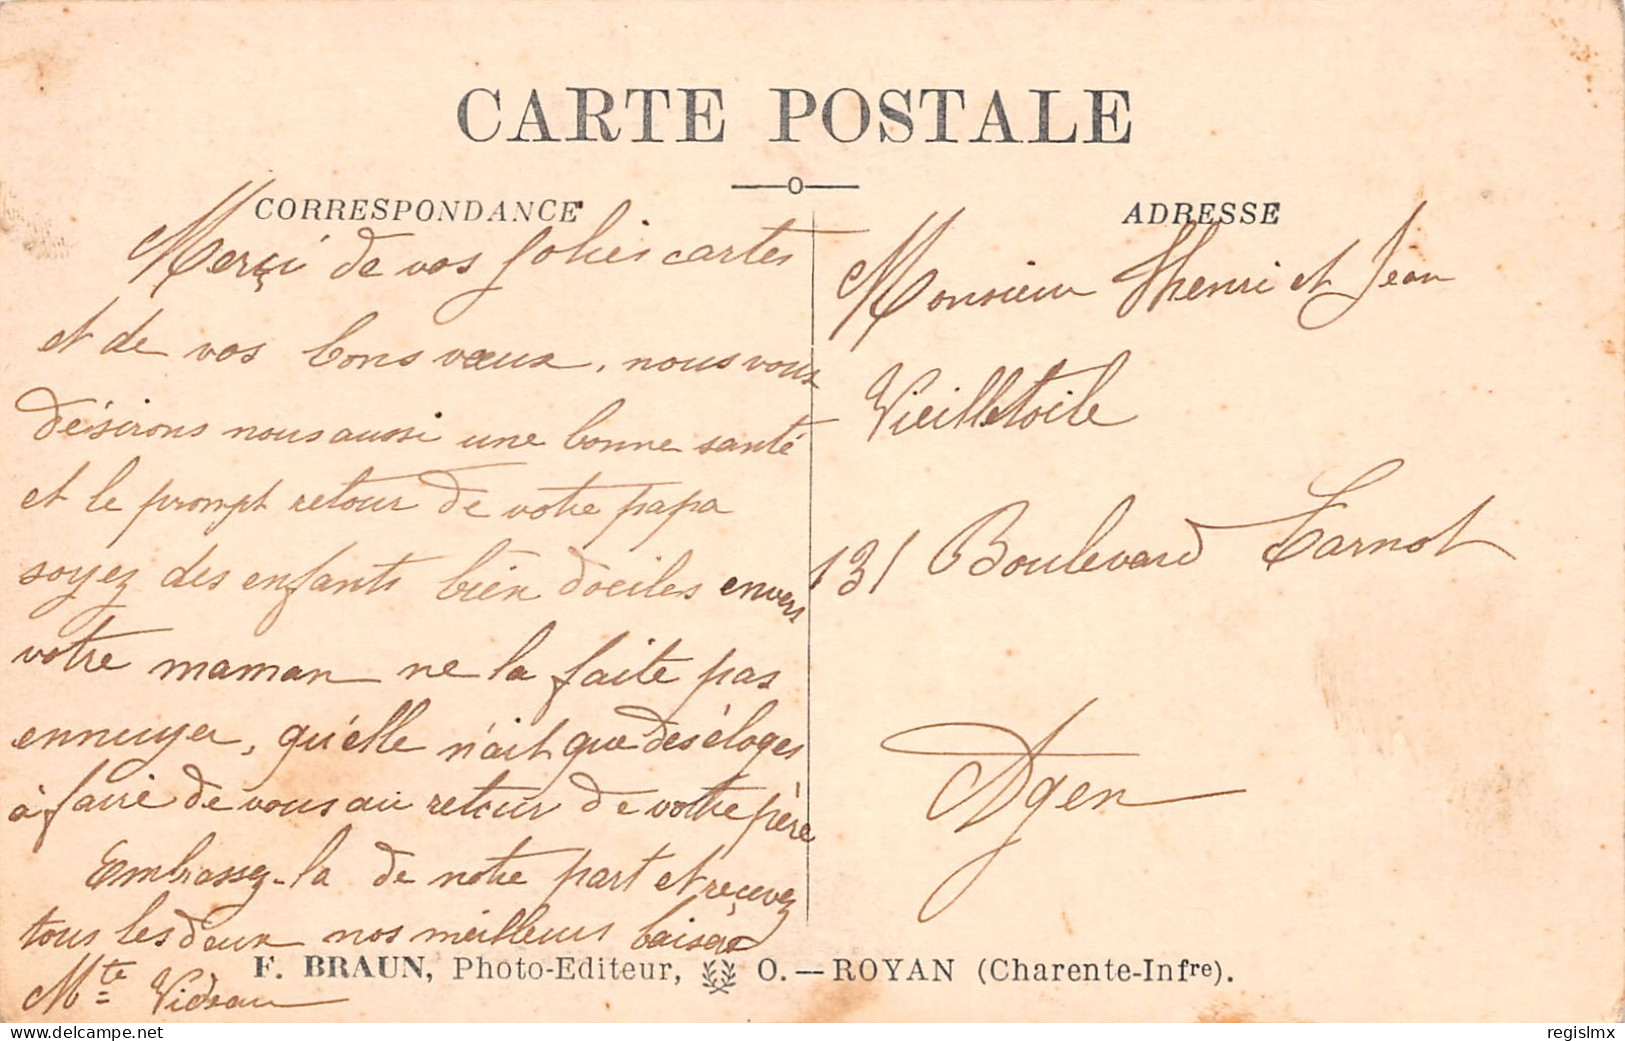 CARTE POSTALE
CORRESPONDANCE
Merçi de vos jolies cartes
et de vos bons vœux, nous vous
désirons nous aussi une bonne santé
et le prompt retour de votre papa
soyez des enfants bien dociles envers
votre maman ne la faite pas
ennuyer, qu'elle n'ait que des éloges
à faire de vous au retour de votre père
Embrassez-la de notre part et reçevez
tous les deux nos meilleurs baisers
Mte
ADRESSE
Monsieur Henri et Jean
Vieilletoile
131 Boulevard Carnot
Agen
F. BRAUN, Photo-Editeur, O. — ROYAN (Charente-Infre).
regislmx